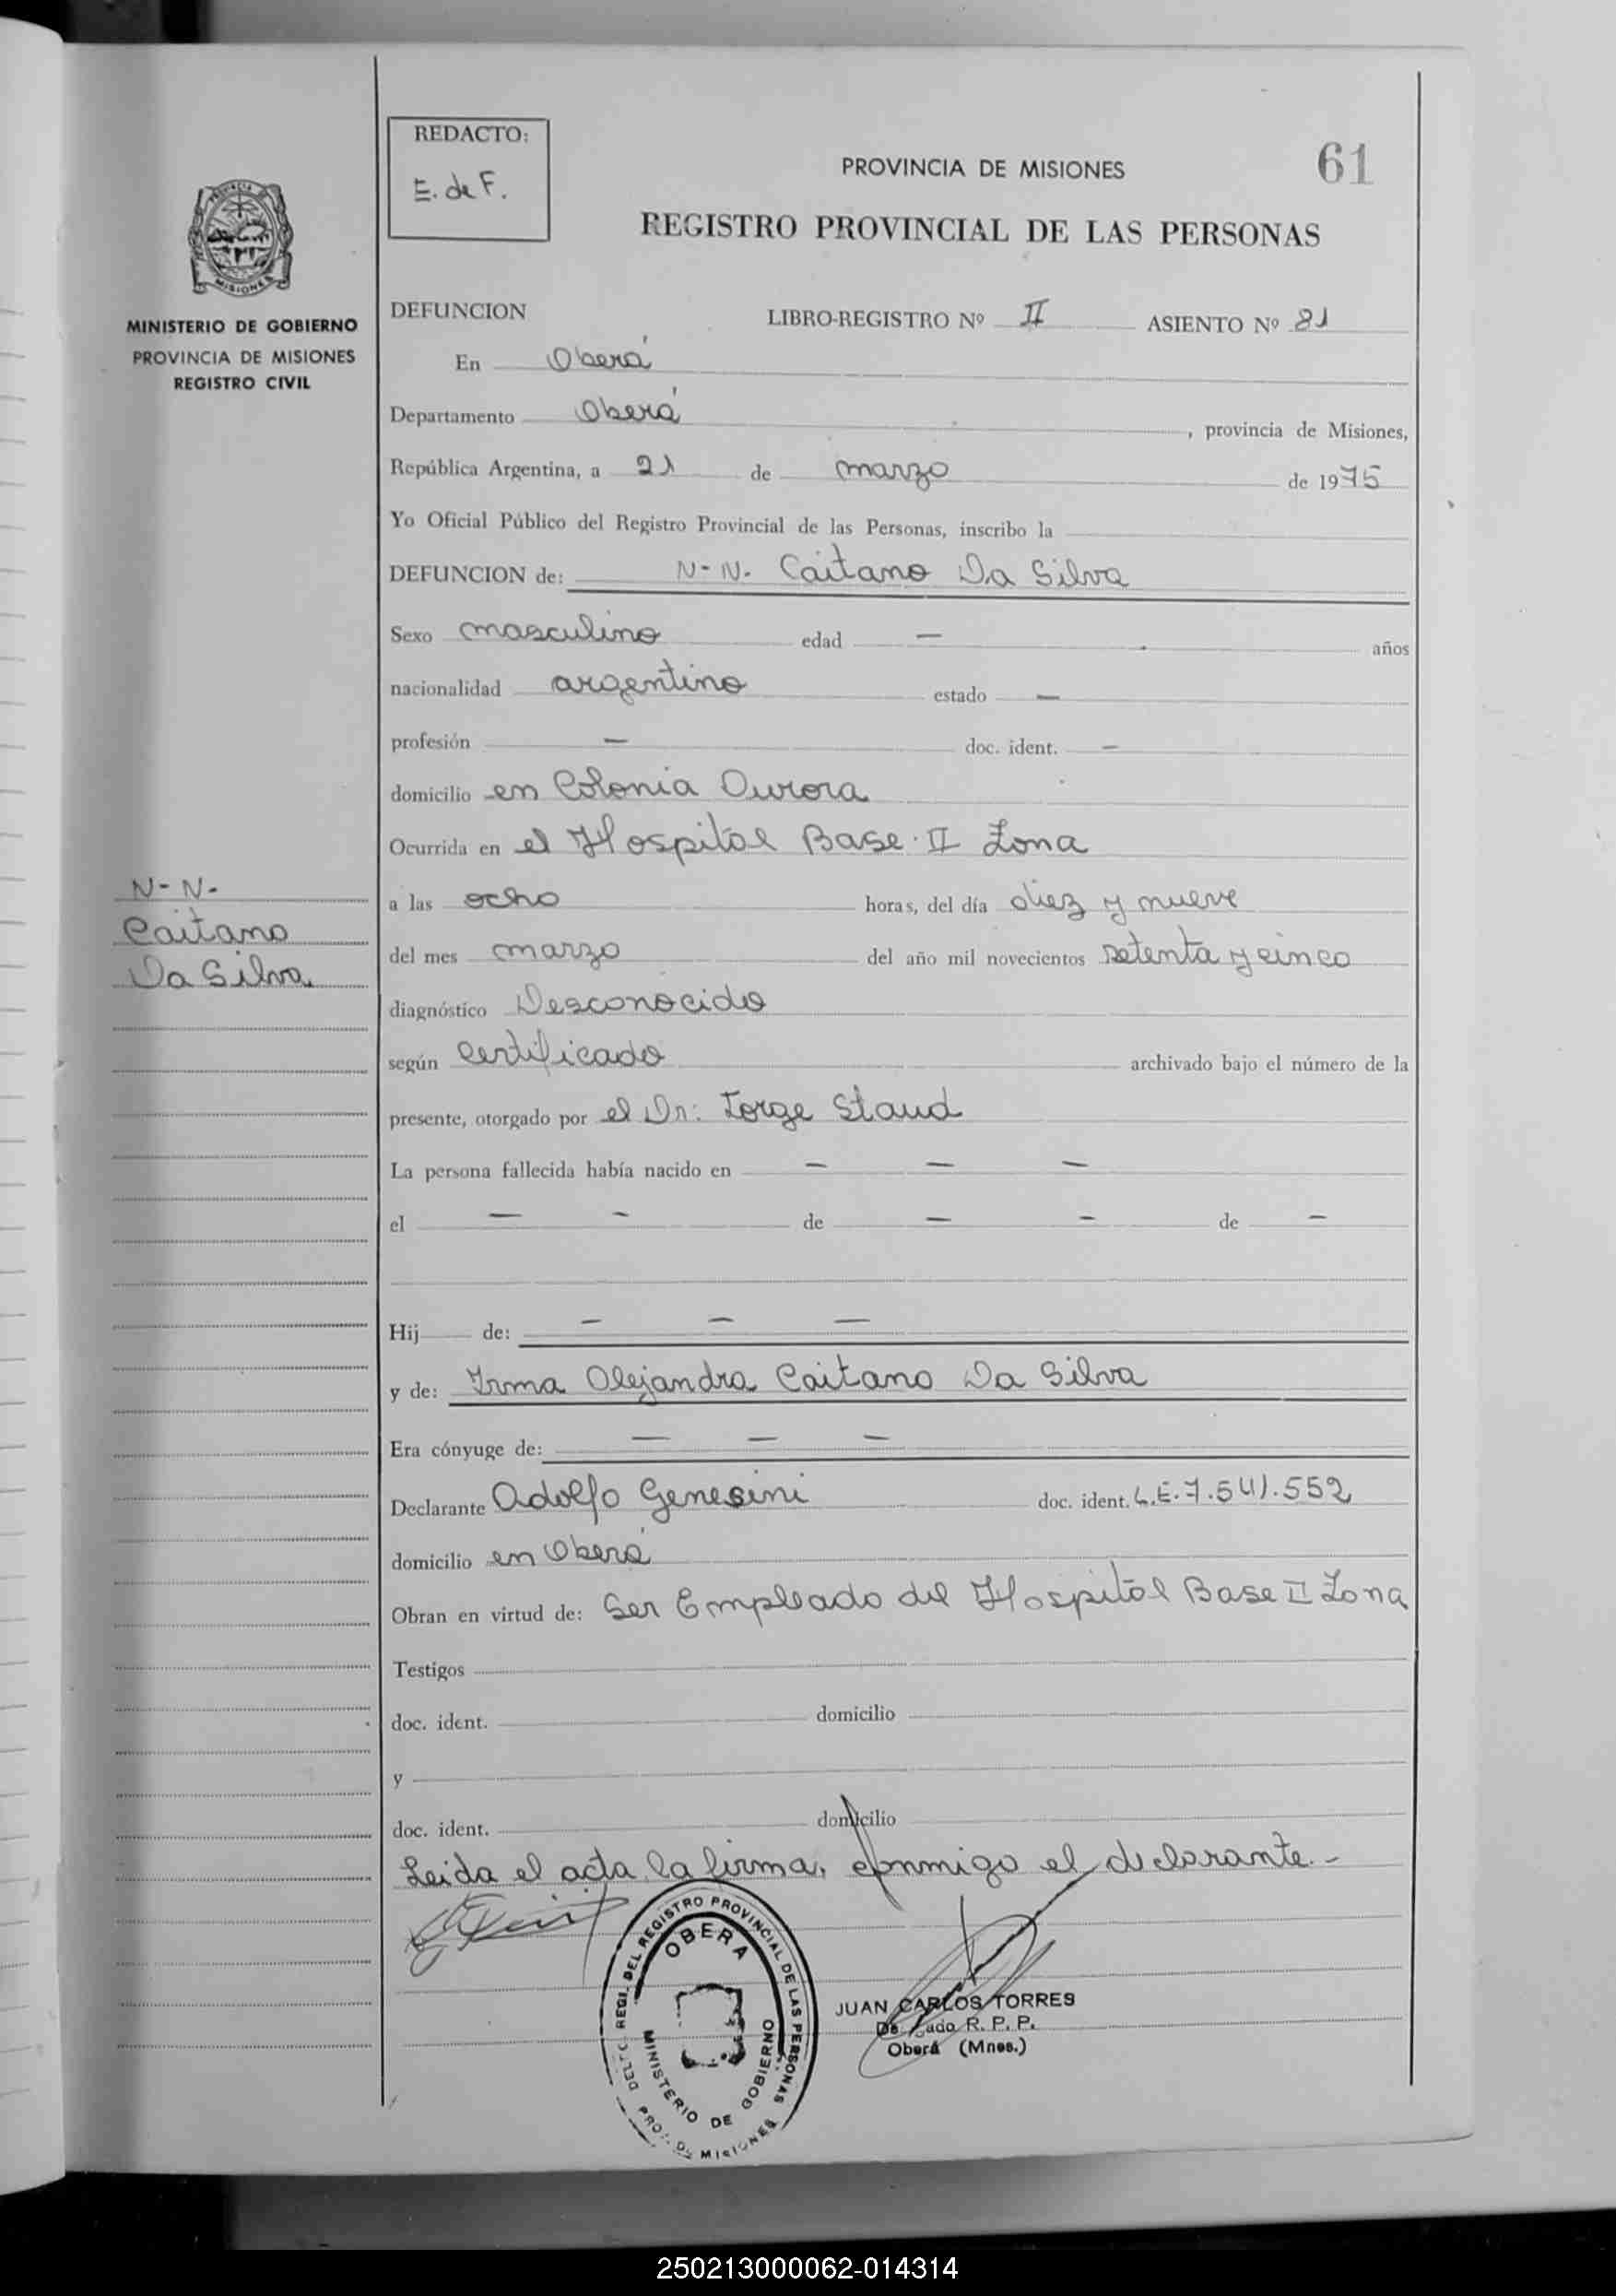 REDACTO:
E. de F.
61
PROVINCIA DE MISIONES
REGISTRO PROVINCIAL DE LAS PERSONAS
MISIONES
MINISTERIO DE GOBIERNO
PROVINCIA DE MISIONES
REGISTRO CIVIL
DEFUNCION LIBRO-REGISTRO Nº II ASIENTO Nº 81
En Oberá
Departamento Oberá, provincia de Misiones,
República Argentina, a 21 de marzo de 1975
Yo Oficial Público del Registro Provincial de las Personas, inscribo la
DEFUNCION de: N-N. Caitano Da Silva
Sexo masculino edad — años
nacionalidad argentino estado —
profesión — doc. ident. —
domicilio en Colonia Aurora
Ocurrida en el Hospital Base II Zona
a las ocho horas, del día diez y nueve
del mes marzo del año mil novecientos setenta y cinco
diagnóstico Desconocido
según Certificado archivado bajo el número de la
presente, otorgado por el Dr: Jorge Staud
La persona fallecida había nacido en — — —
el — - de — - de -
Hij de: — — —
y de: Irma Alejandra Caitano Da Silva
Era cónyuge de: — — —
Declarante Adolfo Genesini doc. ident. L.E. 7.541.552
domicilio en Oberá
Obran en virtud de: Ser Empleado del Hospital Base II Zona
Testigos
doc. ident. domicilio
y
doc. ident. domicilio
Leida el acta la firma, conmigo el declarante.-
N-N.
Caitano
Da Silva
DEL REGISTRO PROVINCIAL DE LAS PERSONAS
OBERA
MINISTERIO DE GOBIERNO
MISIONES
JUAN CARLOS TORRES
R. P. P.
Oberá (Mnes.)
250213000062-014314